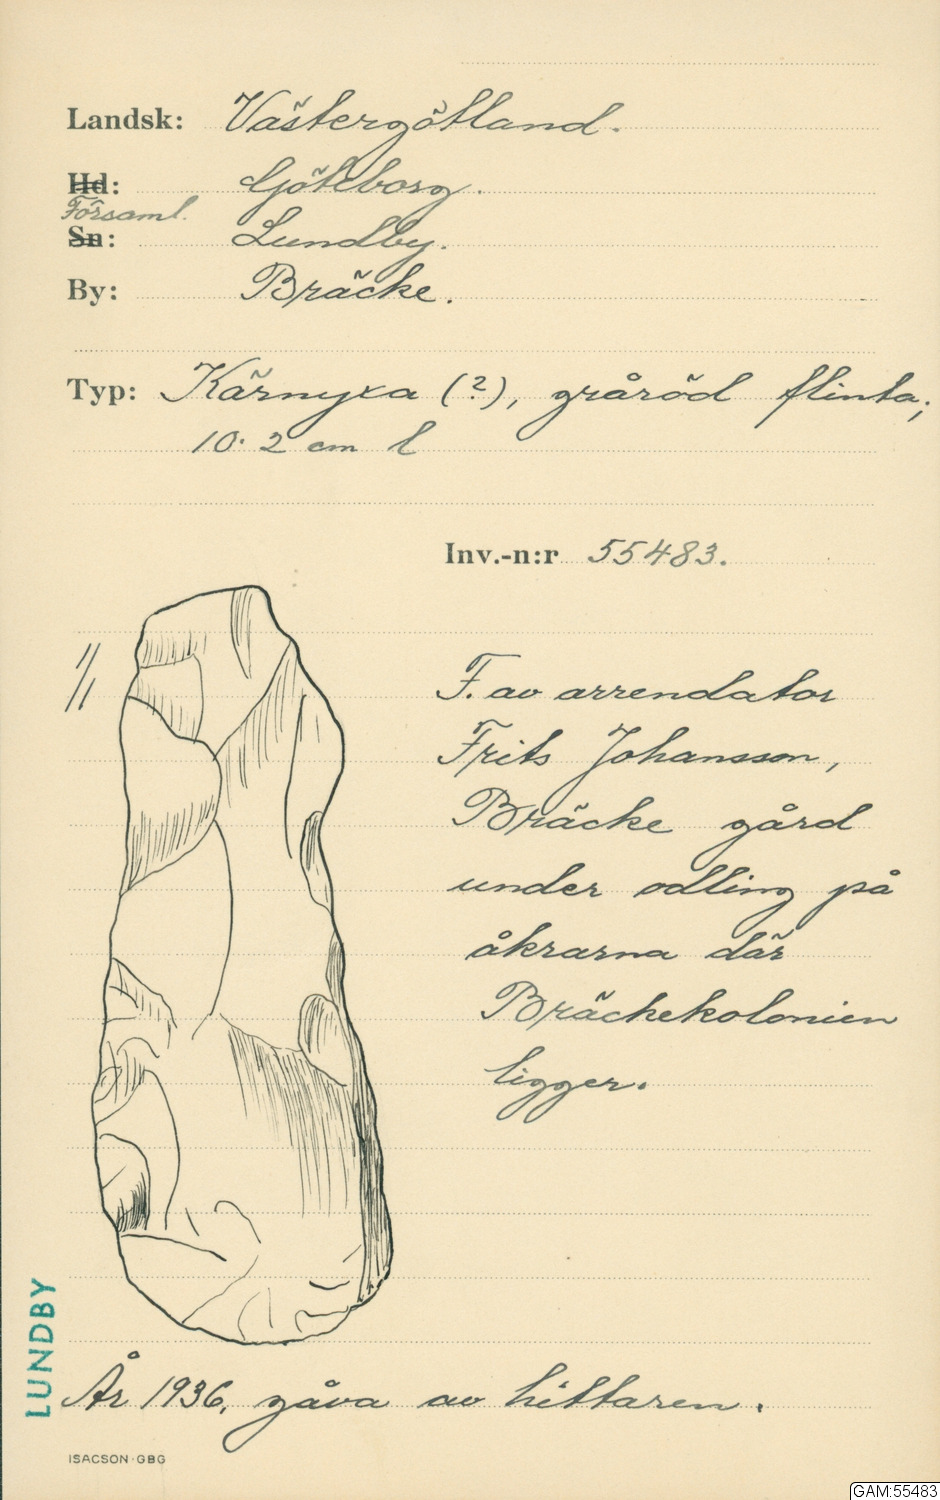 Landsk: Västergötland.
Hd: Göteborg.
Församl.
Sn: Lundby.
By: Bräcke.
Typ: Kärnyxa (?), gråröd flinta;
10.2 cm l
Inv.-n:r 55483.
1/1
F. av arrendator
Frits Johansson,
Bräcke gård
under odling på
åkrarna där
Bräckekolonien
ligger.
LUNDBY
År 1936, gåva av hittaren.
ISACSON·GBG
GAM:55483